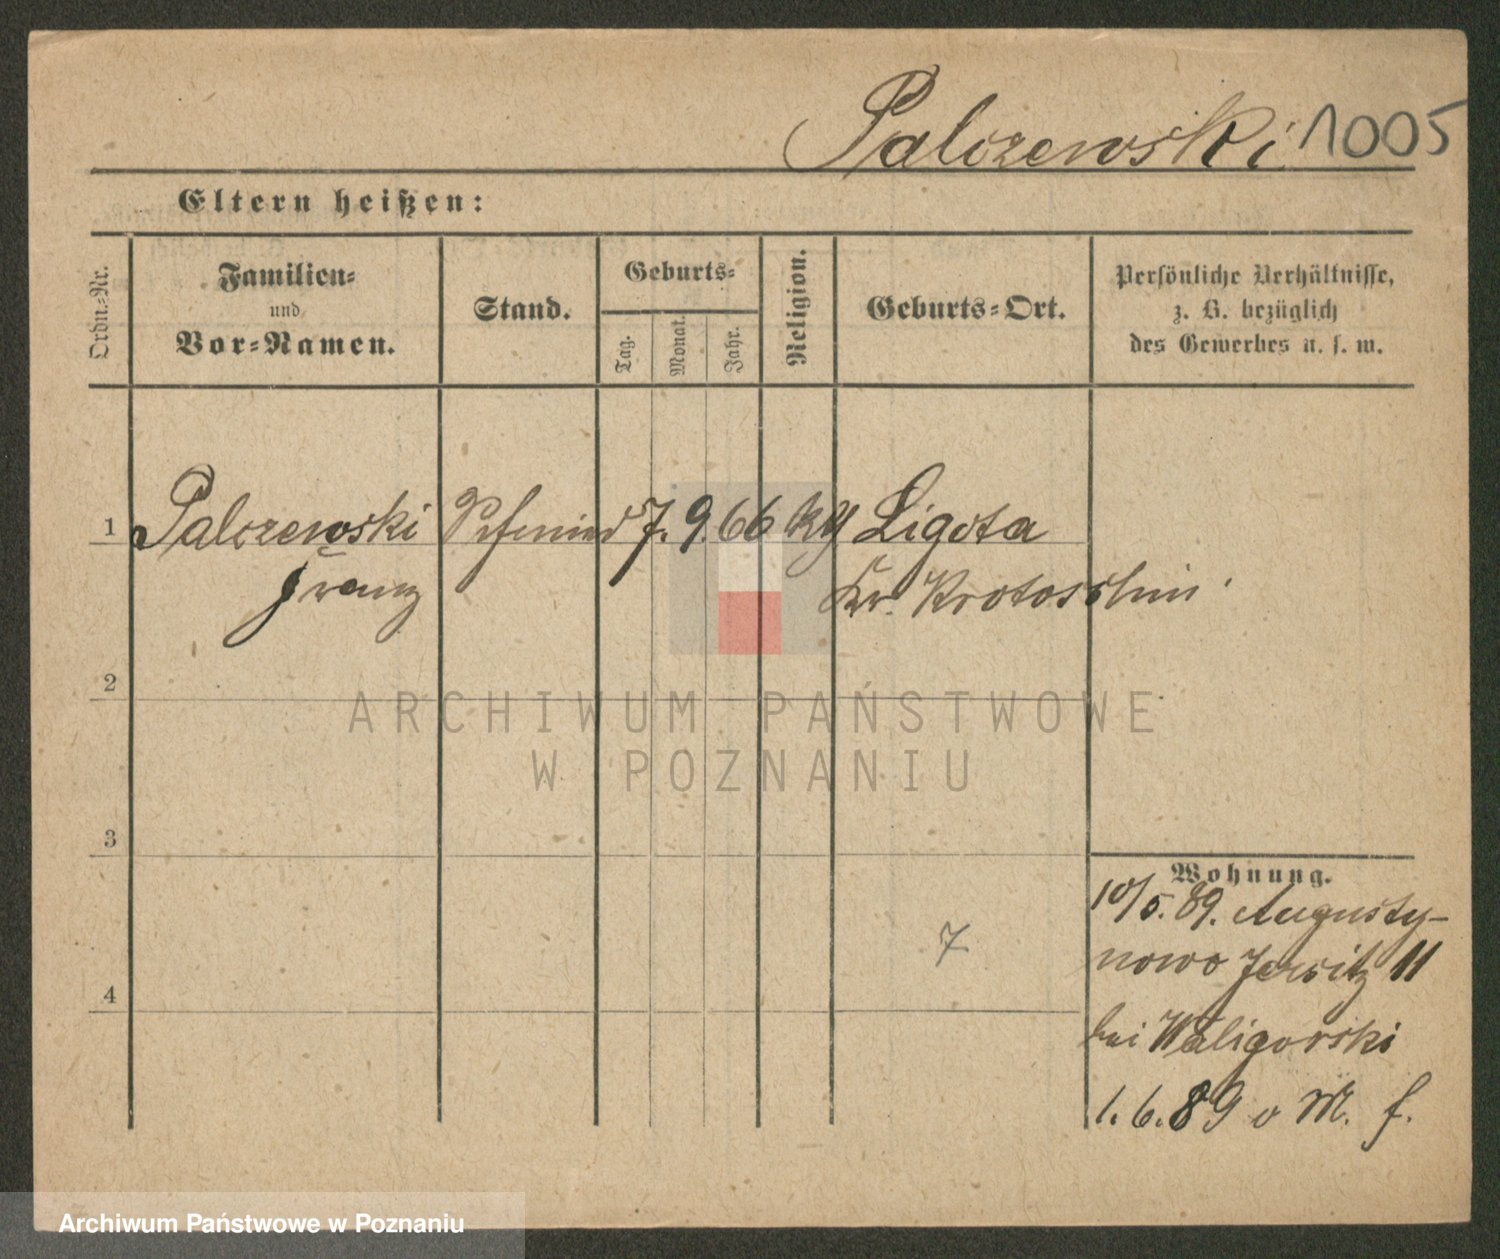 Palczewski 1005
Eltern heißen:
Ordn.-Nr.
Familien-
und
Vor-Namen.
Stand.
Geburts-
Tag.
Monat.
Jahr.
Religion.
Geburts-Ort.
Persönliche Verhältnisse,
z. B. bezüglich
des Gewerbes u. s. w.
1 Palczewski Schmied 7. 9. 66 Ligota
Franz Kr. Krotoschin
2
3
4
7
Wohnung.
10/5. 89. Augusty-
nowo Jersitz 11
bei Waligorski
1. 6. 89 o M. f.
ARCHIWUM PAŃSTWOWE
W POZNANIU
Archiwum Państwowe w Poznaniu